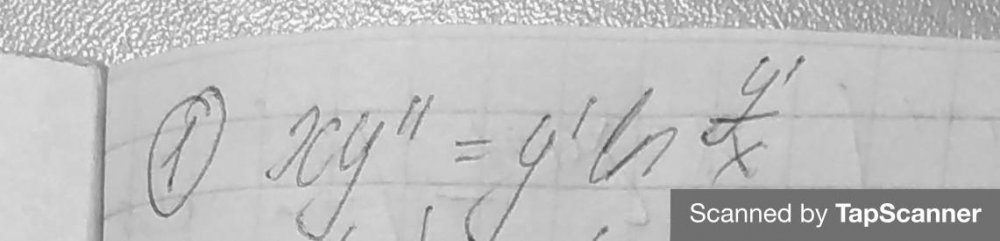 ① xy'' = y' ln y'/x
Scanned by TapScanner